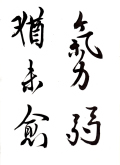 氣力弱
猶未愈